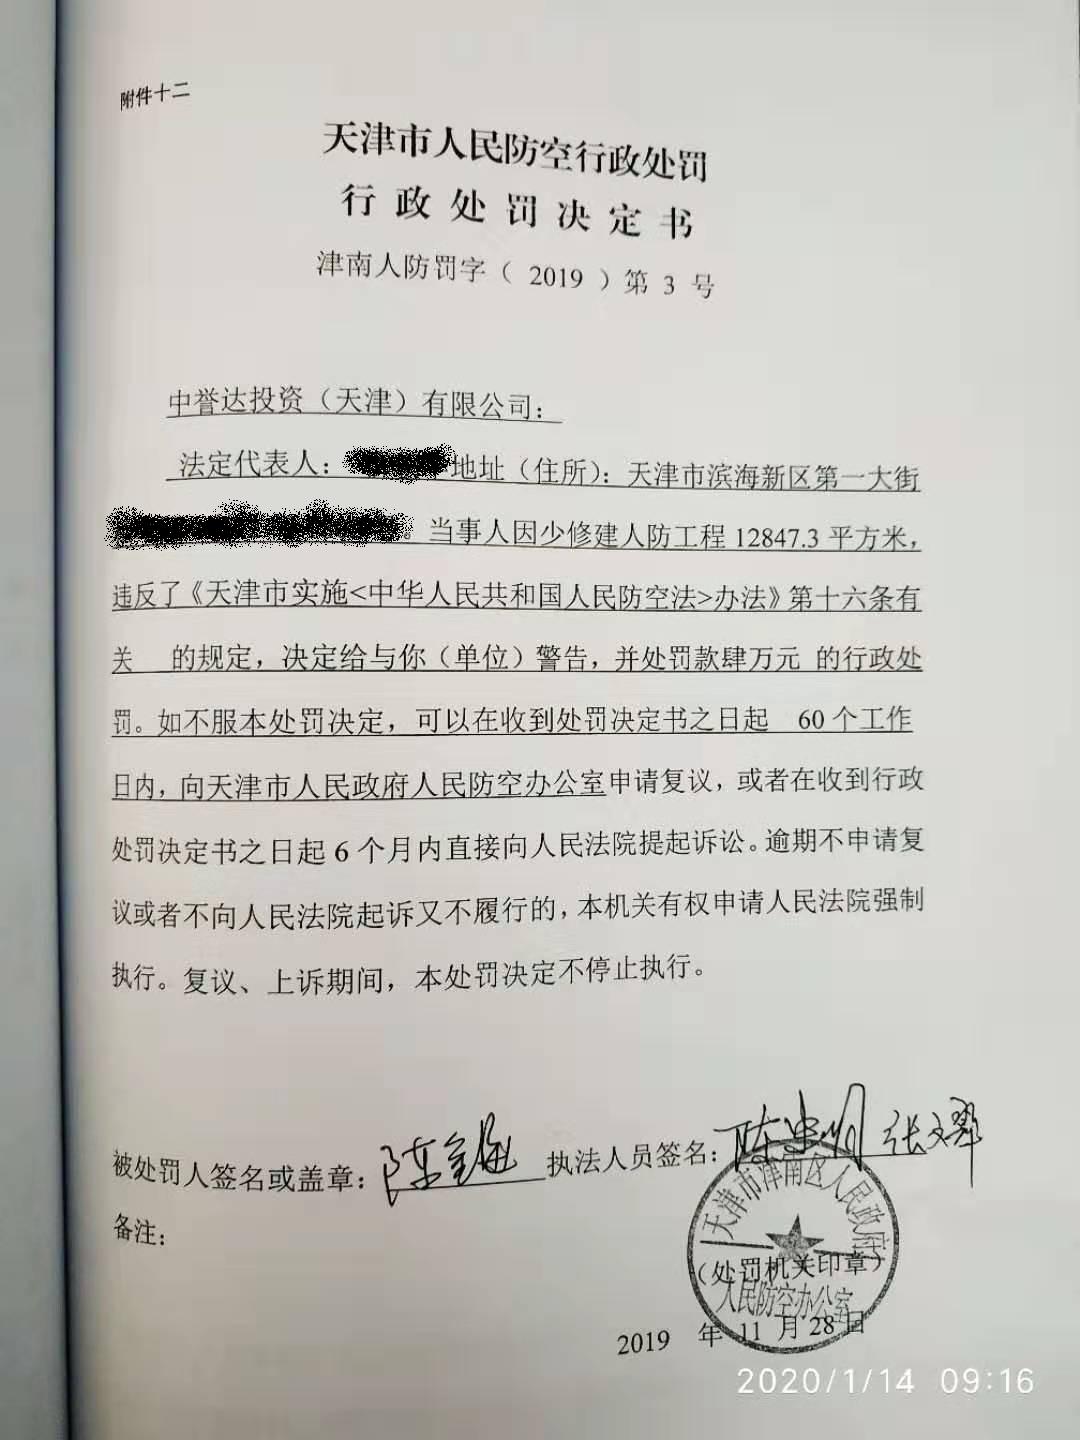 附件十二
天津市人民防空行政处罚
行政处罚决定书
津南人防罚字（2019）第 3 号
中誉达投资（天津）有限公司：
法定代表人： 地址（住所）：天津市滨海新区第一大街
。当事人因少修建人防工程 12847.3 平方米，
违反了《天津市实施<中华人民共和国人民防空法>办法》第十六条有
关 的规定，决定给与你（单位）警告，并处罚款肆万元 的行政处
罚。如不服本处罚决定，可以在收到处罚决定书之日起 60 个工作
日内，向天津市人民政府人民防空办公室申请复议，或者在收到行政
处罚决定书之日起 6 个月内直接向人民法院提起诉讼。逾期不申请复
议或者不向人民法院起诉又不履行的，本机关有权申请人民法院强制
执行。复议、上诉期间，本处罚决定不停止执行。
被处罚人签名或盖章： 执法人员签名：
备注：
天津市津南区人民政府
（处罚机关印章）
人民防空办公室
2019 年 11 月 28 日
2020/1/14 09:16